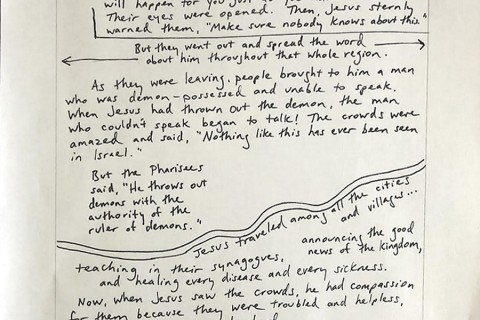 will happen for you just as you have
Their eyes were opened. Then, Jesus sternly
warned them, "Make sure nobody knows about this."
But they went out and spread the word
about him throughout that whole region.
As they were leaving, people brought to him a man
who was demon-possessed and unable to speak.
When Jesus had thrown out the demon, the man
who couldn't speak began to talk! The crowds were
amazed and said, "Nothing like this has ever been seen
in Israel."
But the Pharisees
said, "He throws out
demons with the
authority of the
ruler of demons."
Jesus traveled among all the cities
and villages...
teaching in their synagogues,
announcing the good
news of the kingdom,
and healing every disease and every sickness.
Now, when Jesus saw the crowds, he had compassion
for them because they were troubled and helpless,